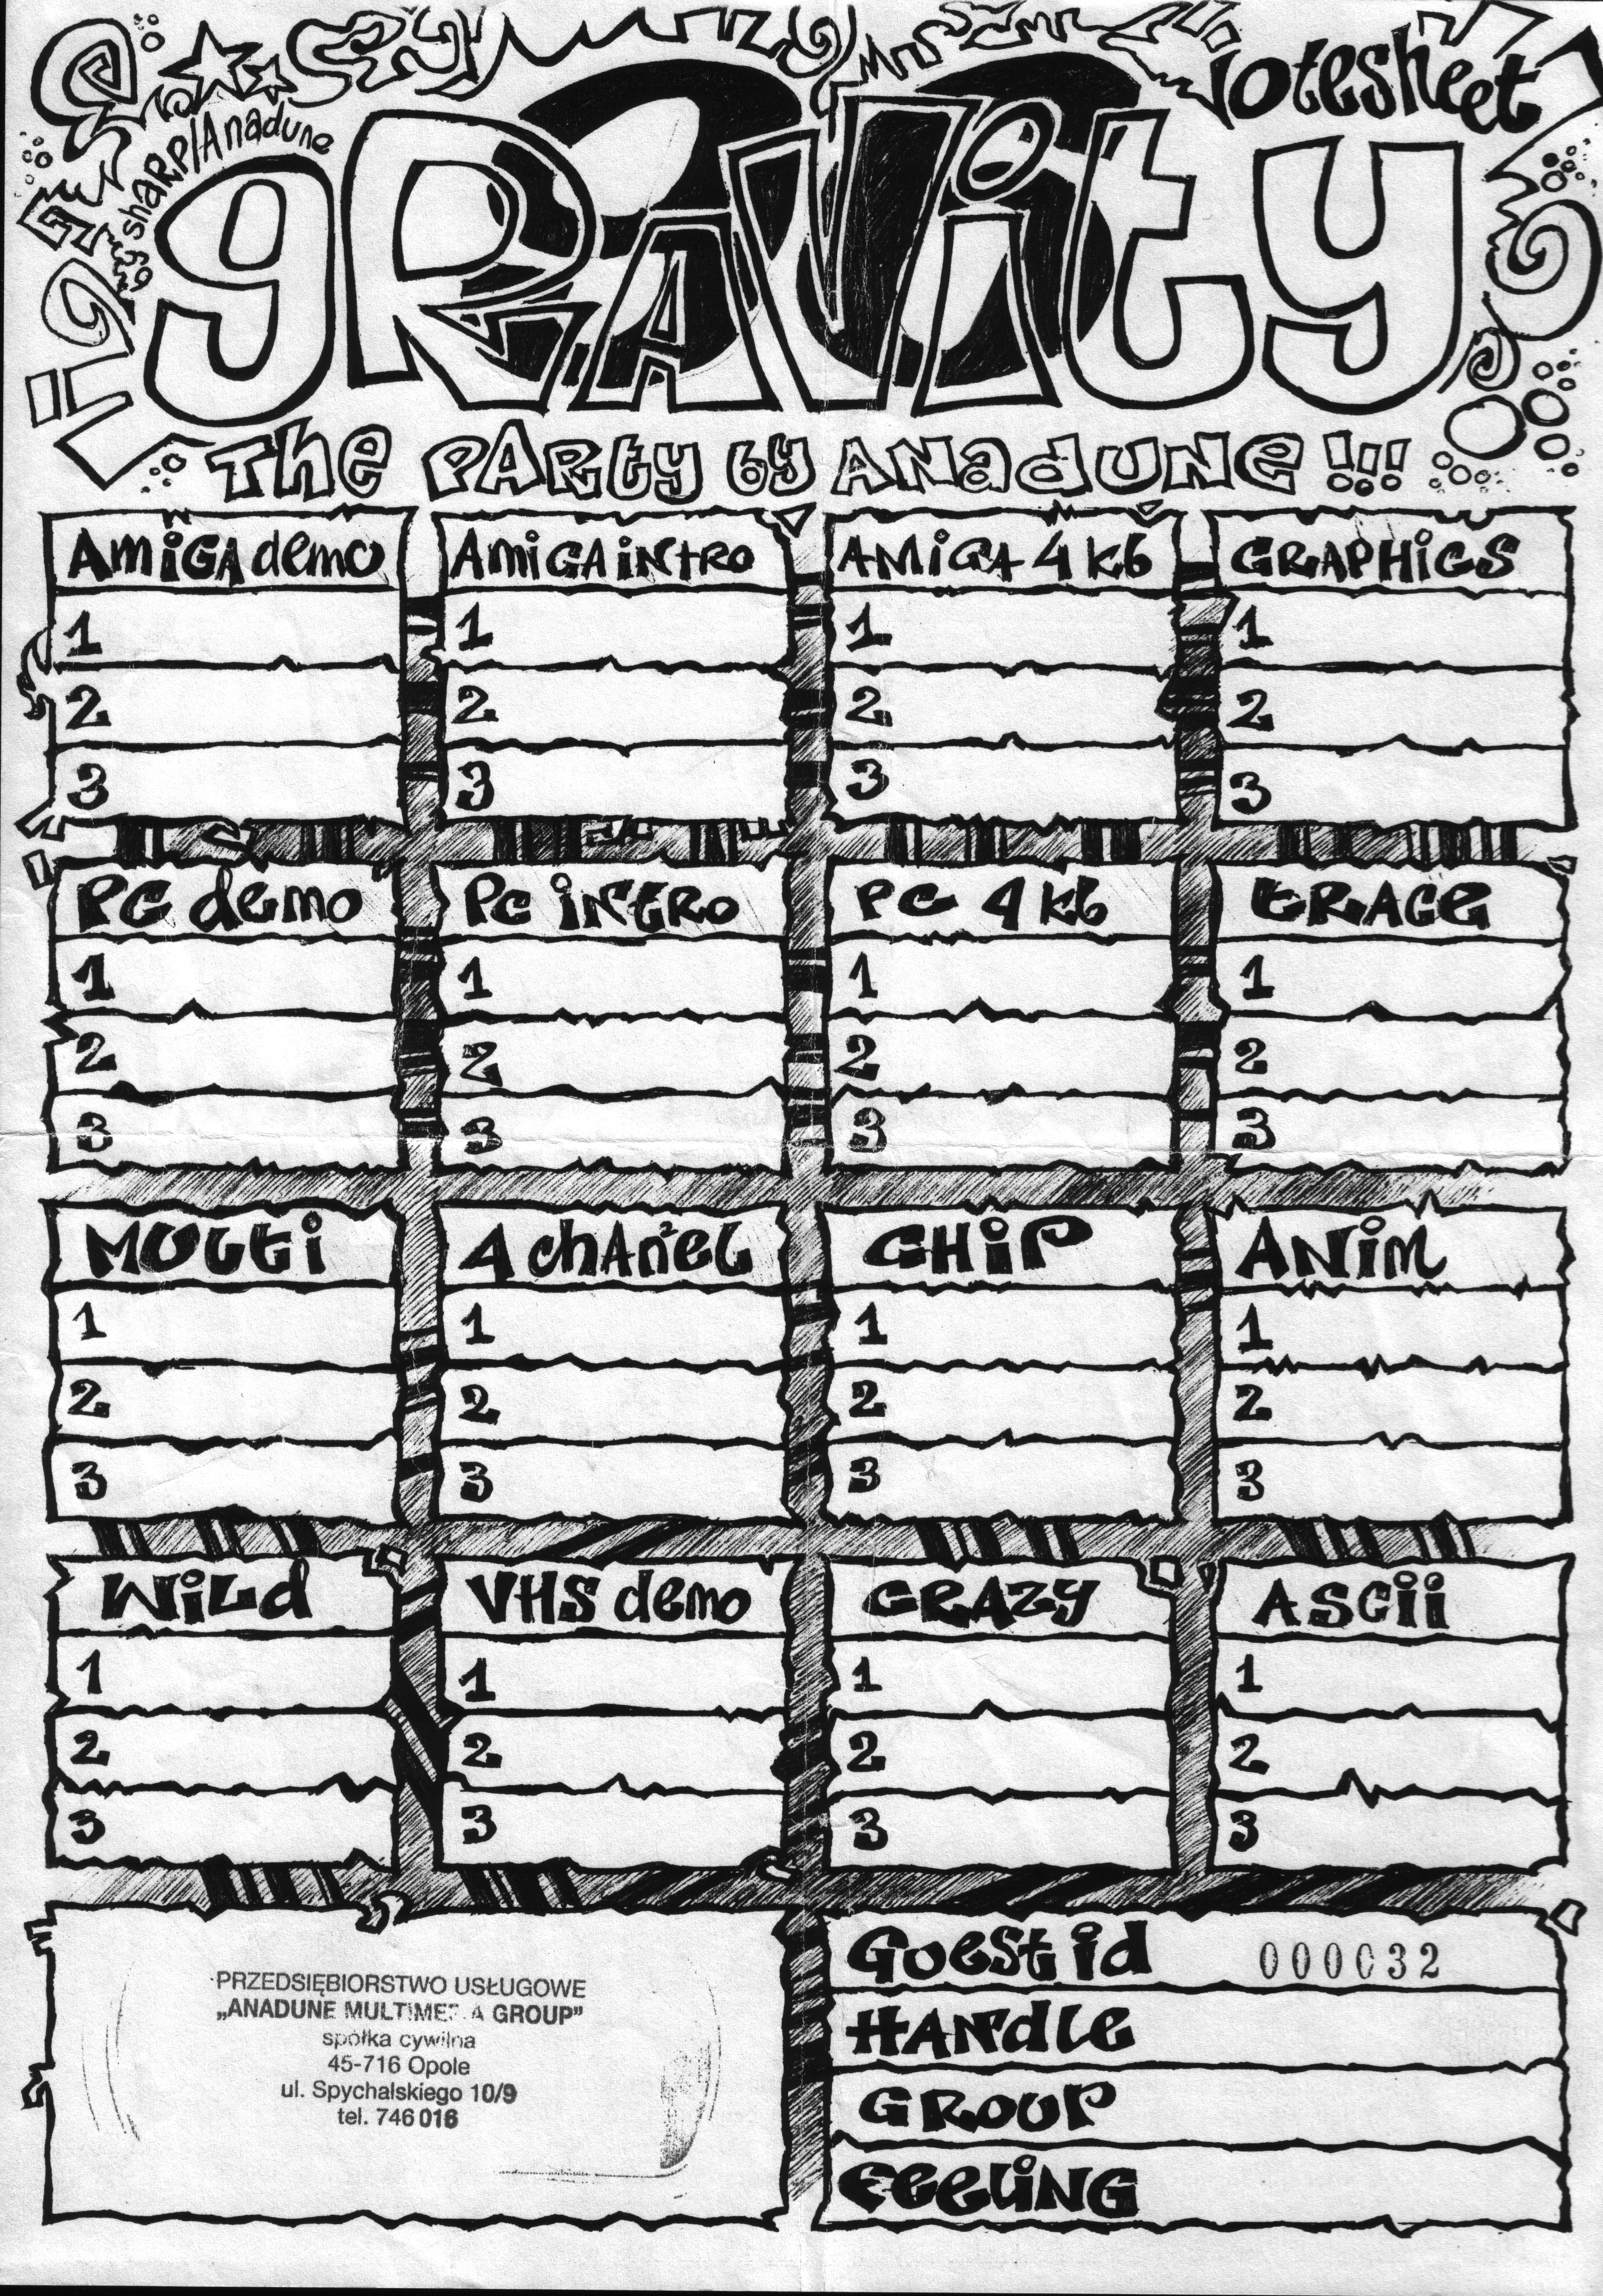 Votesheet
by sharp/Anadune
gravity
the party by Anadune !!!
Amiga demo
1
2
3
Amiga intro
1
2
3
Amiga 4 kb
1
2
3
Graphics
1
2
3
PC demo
1
2
3
PC intro
1
2
3
PC 4 kb
1
2
3
trace
1
2
3
Multi
1
2
3
4 chanel
1
2
3
Chip
1
2
3
Anim
1
2
3
Wild
1
2
3
VHS demo
1
2
3
Crazy
1
2
3
ASCii
1
2
3
PRZEDSIĘBIORSTWO USŁUGOWE
„ANADUNE MULTIMEDIA GROUP”
spółka cywilna
45-716 Opole
ul. Spychalskiego 10/9
tel. 746 016
Guest id 000032
Handle
Group
Feeling